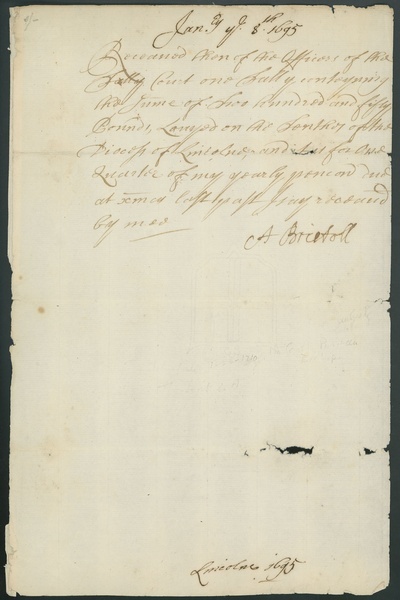 Jan:ry ye. 8th 1695
Receaved then of the Officers of the
Tally Court one Tally, conteyning
the sume of Two hundred and fifty
Pounds, Leavyed on the Tenthes of the
Diocess of Lincolne, and is for One
Quarter of my yearly pencon due
at Xmas last past I say receaved
by mee
A Bristoll
Lincolne 1695